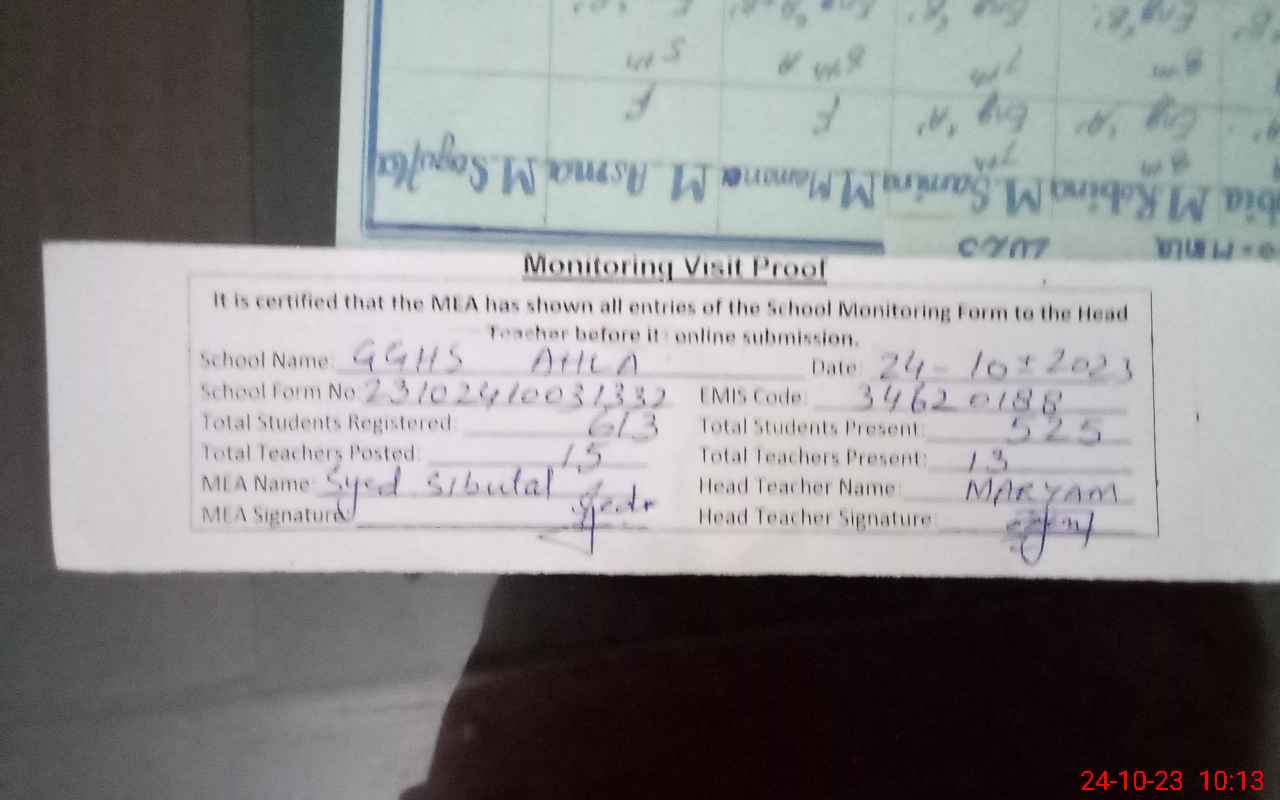 M Sagufta M Asma M Memona M Samina M Robina M
F F Eng "A" Eng "A"
5th 8th A 7th 8th
Monitoring Visit Proof
It is certified that the MEA has shown all entries of the School Monitoring Form to the Head
Teacher before it online submission.
School Name: GGHS AHLA Date: 24-10-2023
School Form No 23102410031332 EMIS Code: 34620188
Total Students Registered: 613 Total Students Present: 525
Total Teachers Posted: 15 Total Teachers Present: 13
MEA Name: Syed Sibutal Head Teacher Name: MARYAM
MEA Signature Head Teacher Signature
24-10-23 10:13